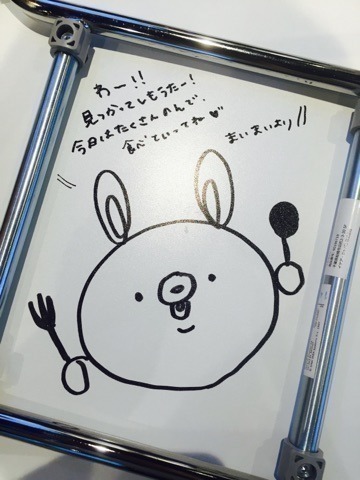 わー!!
見つかってしもうたー!
今日はたくさんのんで、
食べていってね♥
まいまいより